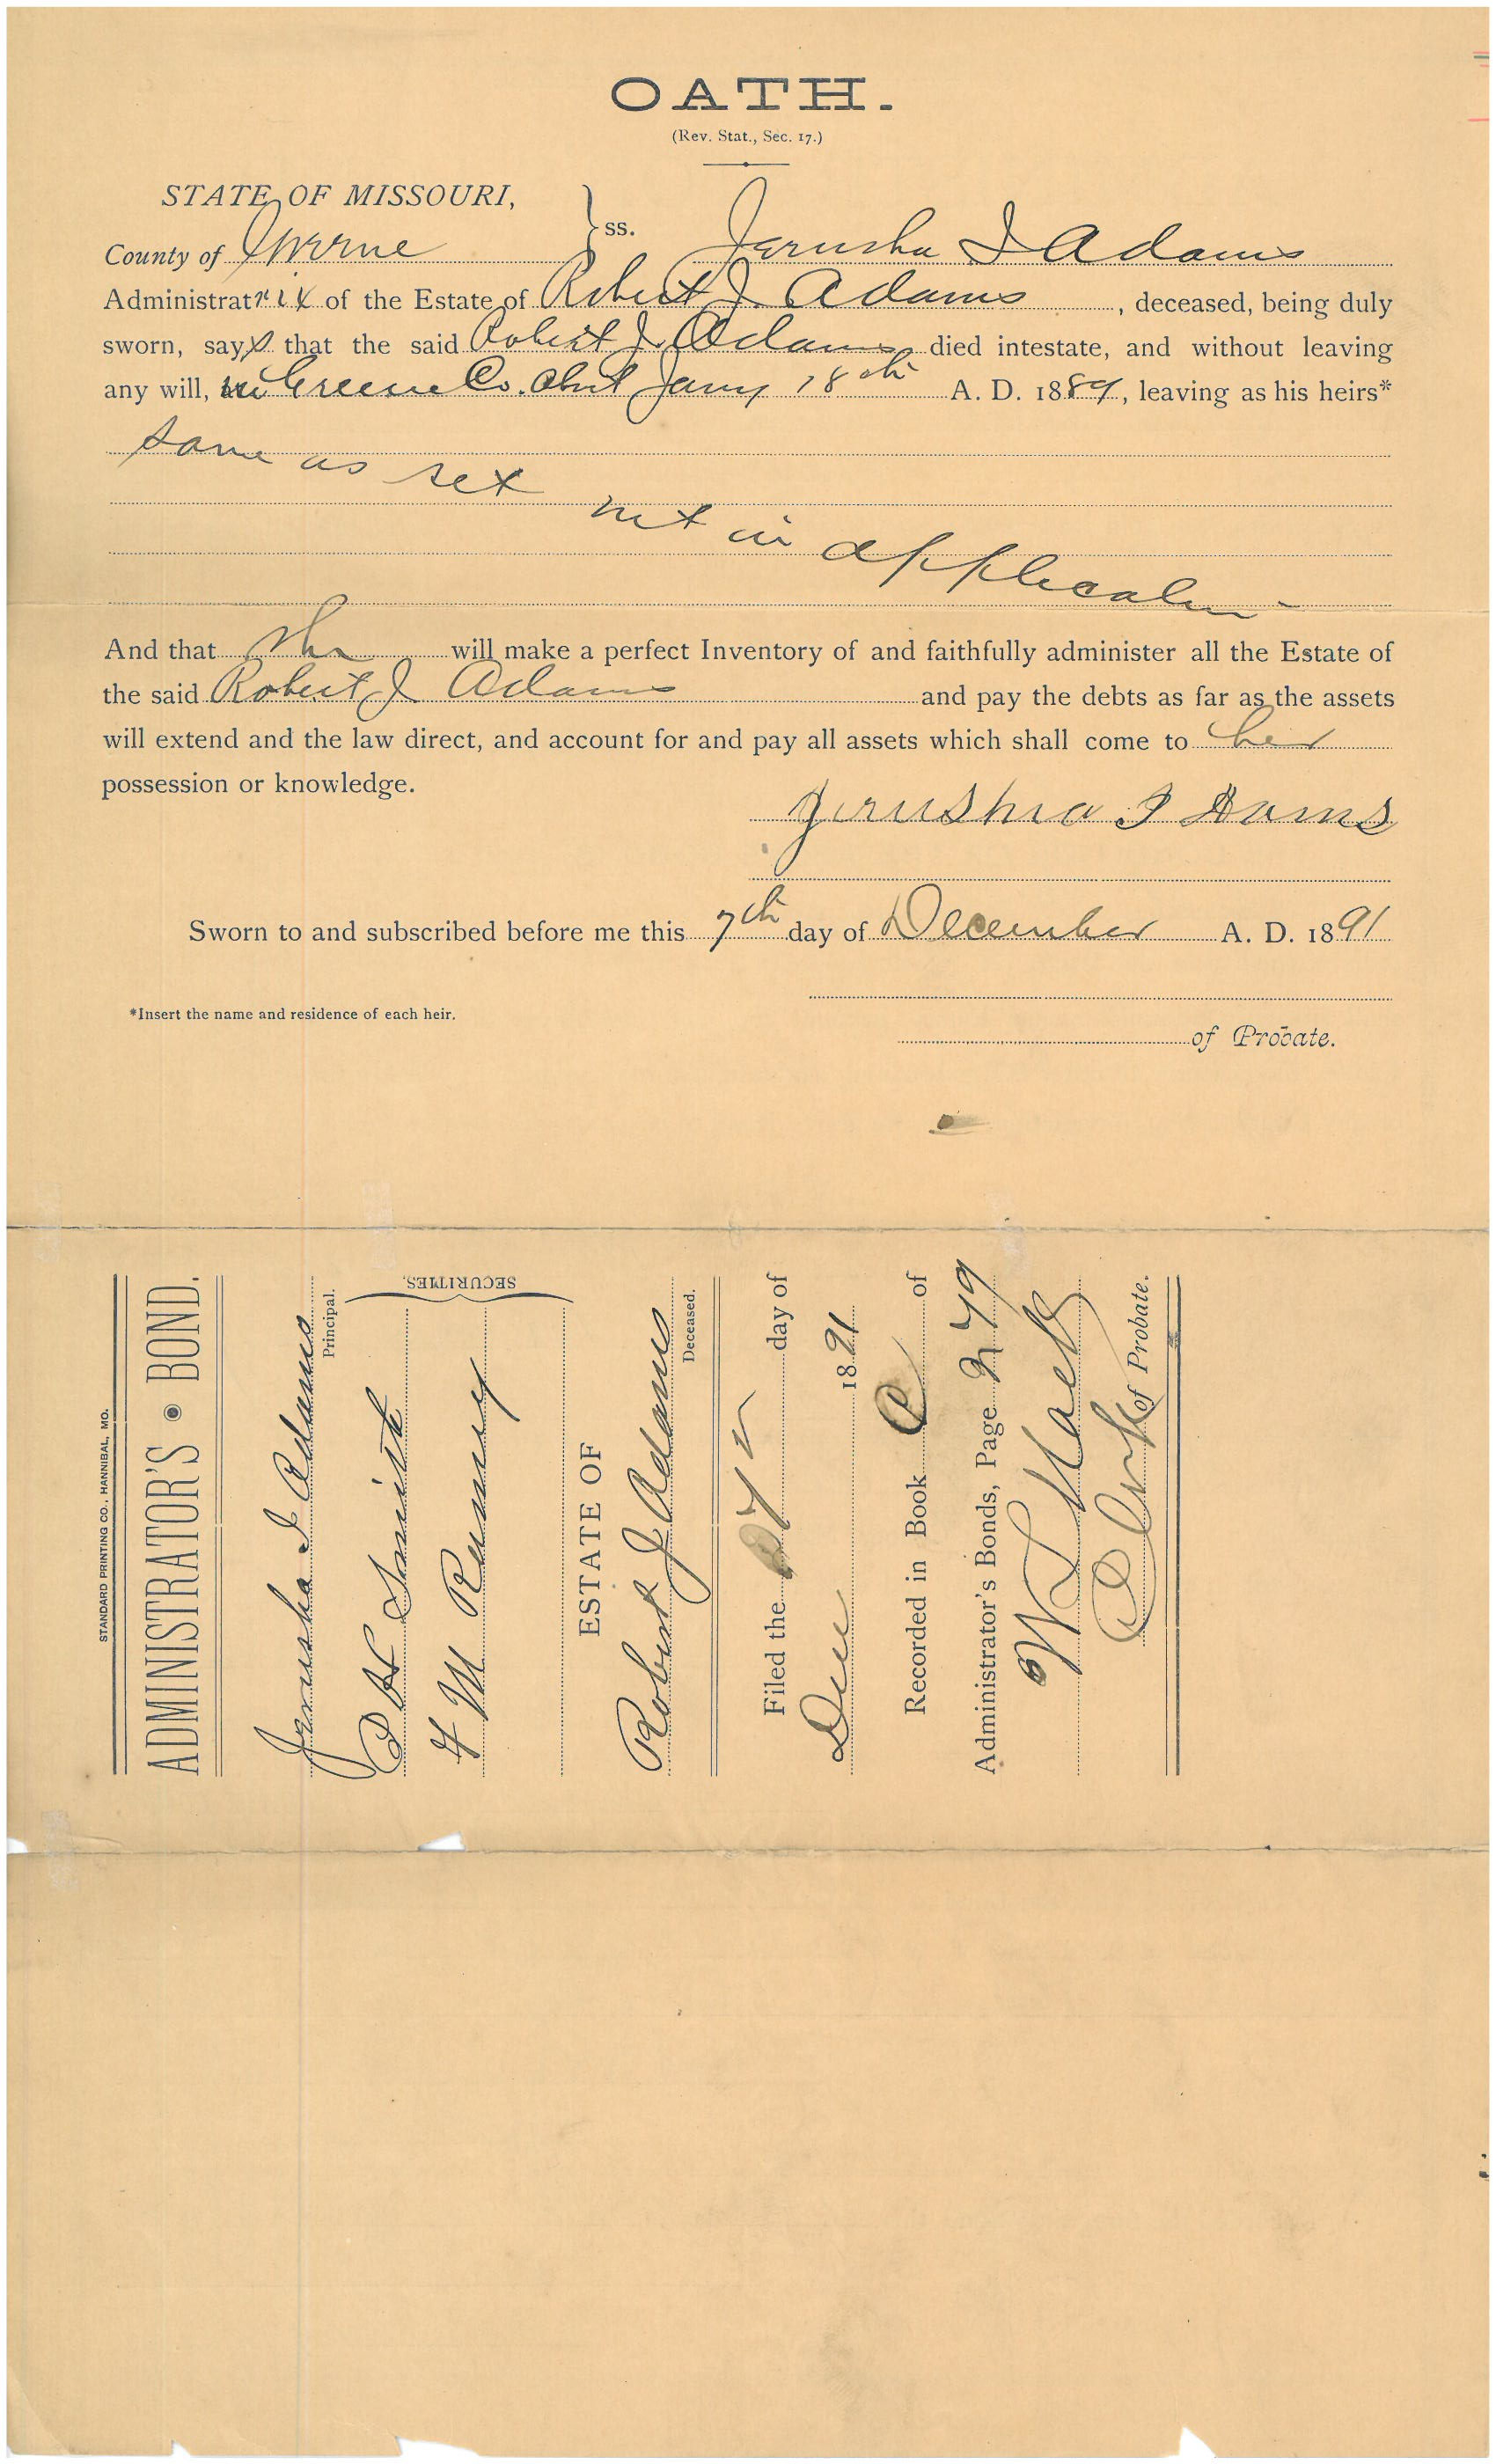 OATH.
(Rev. Stat., Sec. 17.)
STATE OF MISSOURI,
County of Greene } ss. Jerusha I Adams
Administratrix of the Estate of Robert J Adams, deceased, being duly
sworn, says that the said Robert J. Adams died intestate, and without leaving
any will, in Greene Co. Abut Jany 18th A. D. 1889, leaving as his heirs*
same as set
out in application
And that she will make a perfect Inventory of and faithfully administer all the Estate of
the said Robert J Adams and pay the debts as far as the assets
will extend and the law direct, and account for and pay all assets which shall come to her
possession or knowledge.
Jerushia I Adams
Sworn to and subscribed before me this 7th day of December A. D. 1891
*Insert the name and residence of each heir.
of Probate.
STANDARD PRINTING CO., HANNIBAL, MO.
ADMINISTRATOR'S BOND.
Jerusha I Adams
Principal.
Smith
M
SECURITIES.
ESTATE OF
Robert J Adams
Deceased.
Filed the 7 day of
Dec 1891
Recorded in Book of
Administrator's Bonds, Page 279
W L
Clerk of Probate.